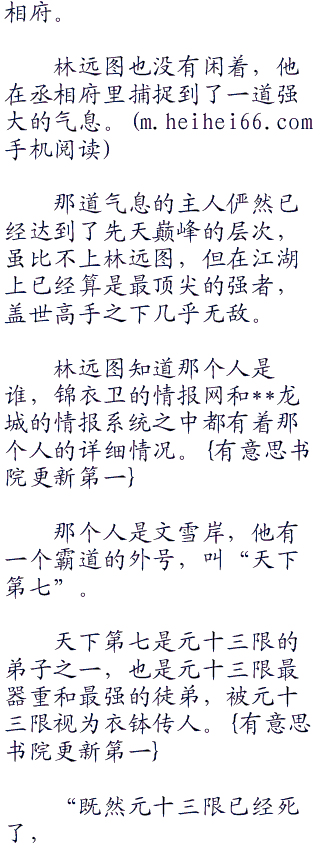 相府。
林远图也没有闲着，他
在丞相府里捕捉到了一道强
大的气息。(m.heihei66.com
手机阅读)
那道气息的主人俨然已
经达到了先天巅峰的层次，
虽比不上林远图，但在江湖
上已经算是最顶尖的强者，
盖世高手之下几乎无敌。
林远图知道那个人是
谁，锦衣卫的情报网和**龙
城的情报系统之中都有着那
个人的详细情况。{有意思书
院更新第一}
那个人是文雪岸，他有
一个霸道的外号，叫“天下
第七”。
天下第七是元十三限的
弟子之一，也是元十三限最
器重和最强的徒弟，被元十
三限视为衣钵传人。{有意思
书院更新第一}
“既然元十三限已经死
了，